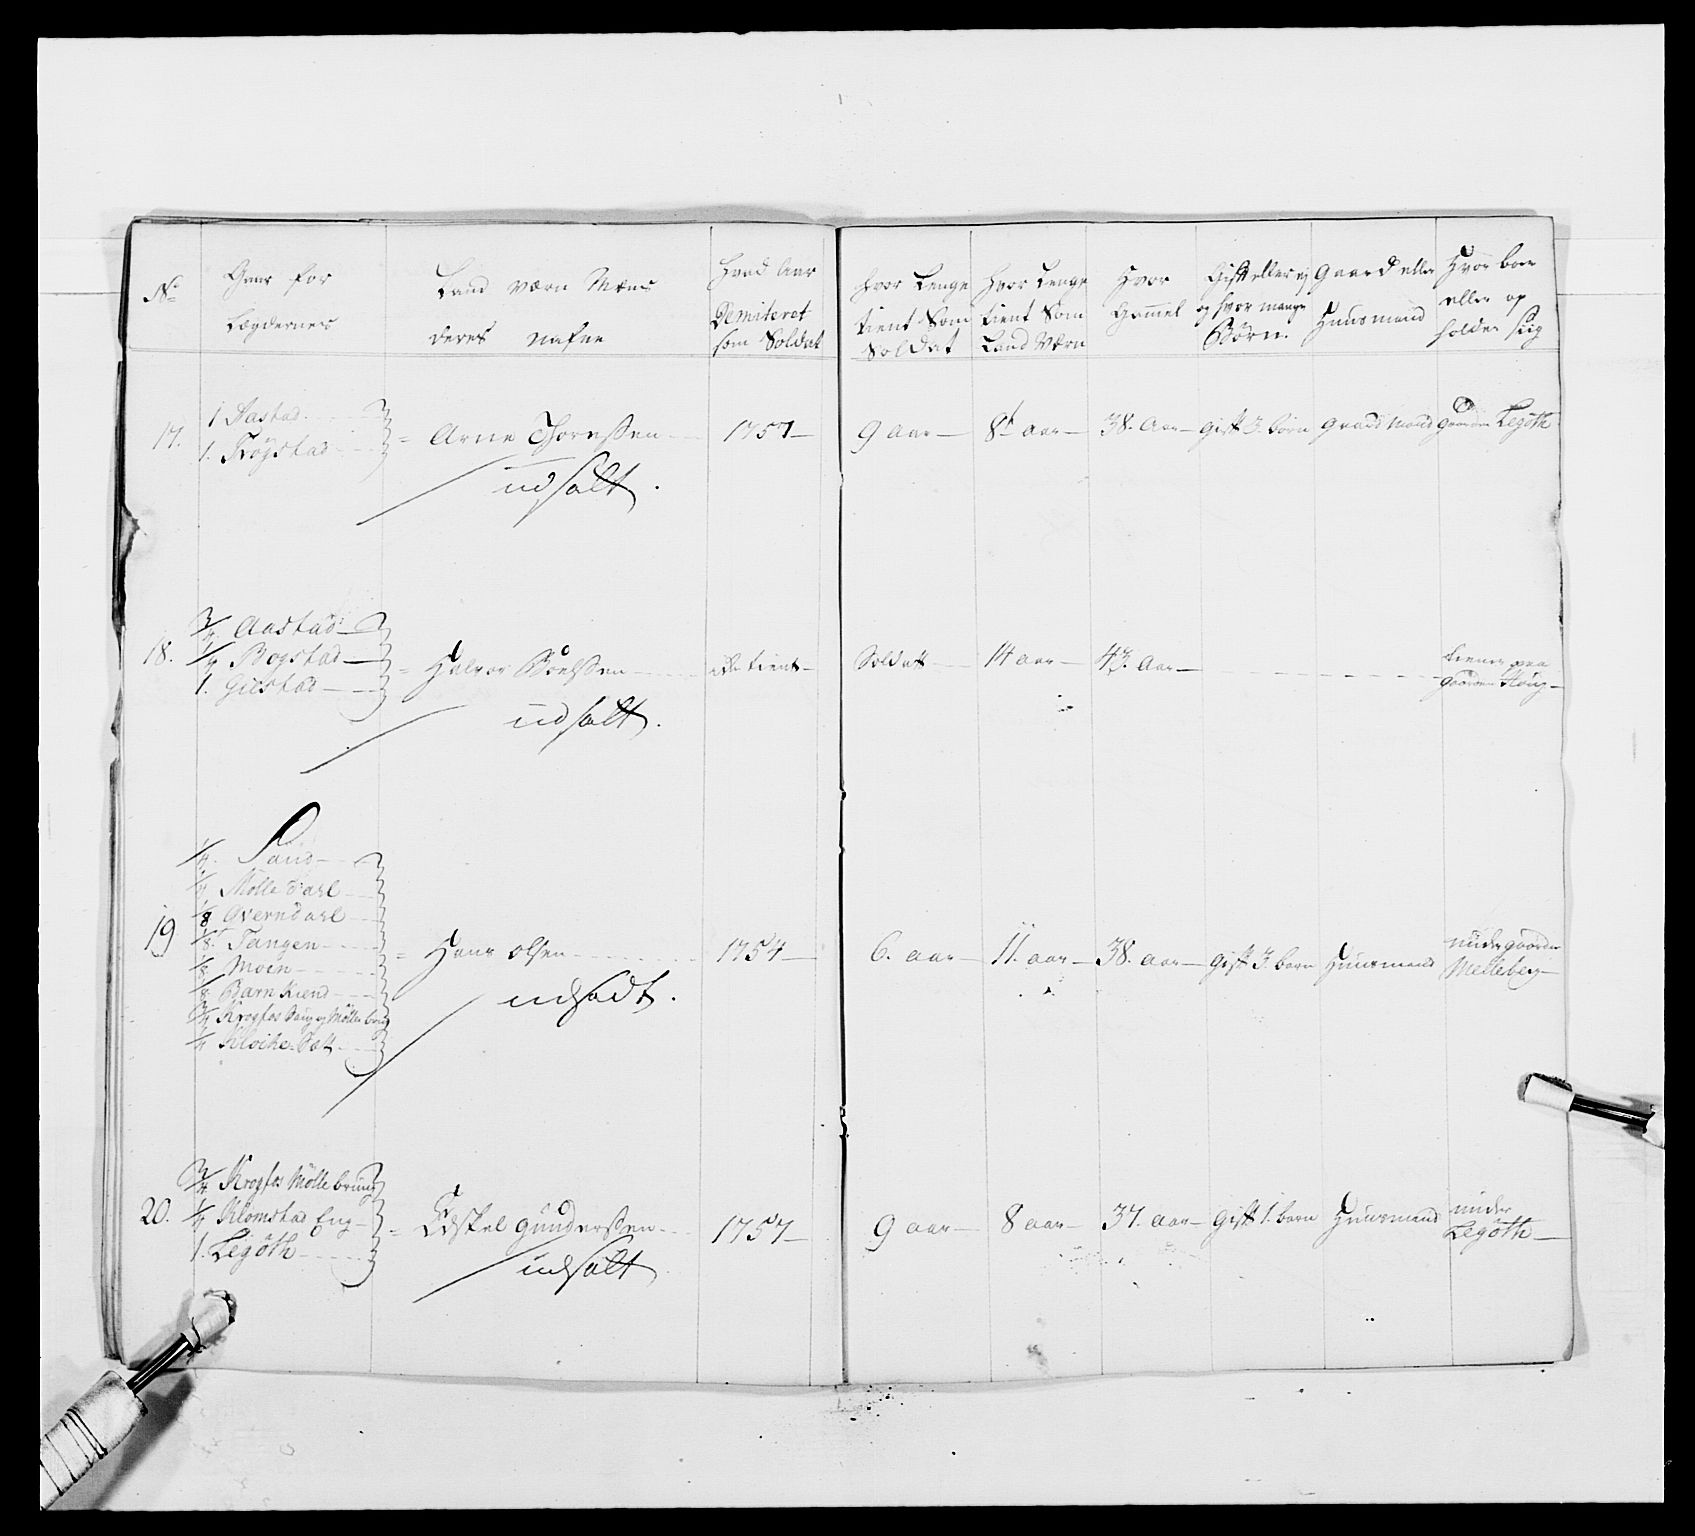 No
for
Lægdernes
Land værn Mens
deres nafne
hvad Aar
Demiteret
som Soldat
hvor Lenge
tient Som
Soldat
hvor Lenge
tient Som
Land Værn
Hvor
Gammel
Gift eller ej
og hvor mange
Børn.
Gaard eller
Huusmand
Hvor boer
eller op
holder sig
17.
1 Aastad
1. Trøgstad
= Arne Thoresen
1757
9 aar
8 aar
38. Aar
gift 3. børn
Gaard Mand
gaarden Legøth
udsatt.
18.
3/4 Aastad
1/4 Bogstad
1. Gilstad
= Halvor Boelsen
tient
Soldatt
14 aar
43. Aar
tiener paa
gaarden Houg
udsatt.
19
1/4. Sand
1/4 Mølle Dahl
1/8 Overn Dahl
1/8. Tangen
1/8 Moen
1/8 Barn Kiend
3/4 Krogfos Saug og Møllebrug
1/4 Kloche Sæt
= Hans Olsen
1754
6. aar
11. aar
38. aar
gift 3. børn
Huusmand
under gaarden
Melleberg
udsadt.
20.
3/4 Krogfos Møllebrug
1/4 Klomstad Eng
1. Legøth
= Edskel Gundersen
1757
9 aar
8 aar
37. aar
gift 1. barn
Huusmand
under
Legøth
udsatt